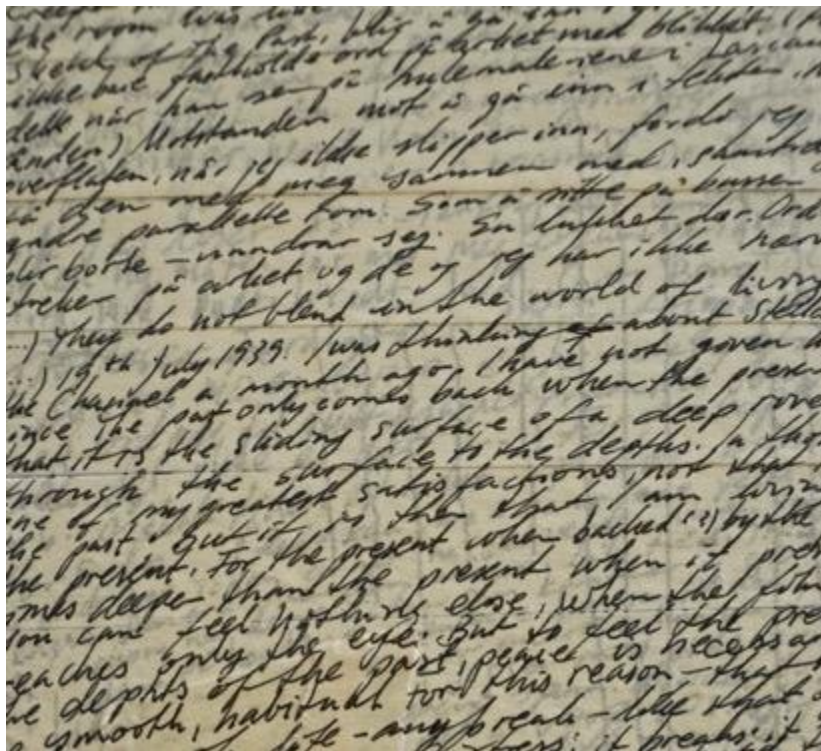 the room was like
Sketch of the Past, blir å gå
ikke bare fastholde ord på arket med blikket.
dette når han ser på hulemaleriene i Lascaux
ånden) Motstanden mot å gå inn i teksten.
overflaten, når jeg ikke slipper inn, fordi jeg
få den med meg sammen med,
andre parallelle rom. Som å sitte på bussen
blir borte - vandrar seg. En lukket dør. Ord
streker på arket og de og jeg har ikke noen
...) They do not blend in the world of living
...) 19th July 1939. I was thinking of about
the Channel a month ago, I have not given
since the past only comes back when the present
that it is the sliding surface of a deep river
through the surface to the depths. In
one of my greatest satisfactions, not that
the past but it is then that I am living
the present. For the present when backed (?) by the
times deeper than the present when it
you can feel nothing else, when the
reaches only the eye. But to feel the
the dephts of the past, peace is necessary
smooth, habitual for this reason - that
life - any break - like that
it breaks: it